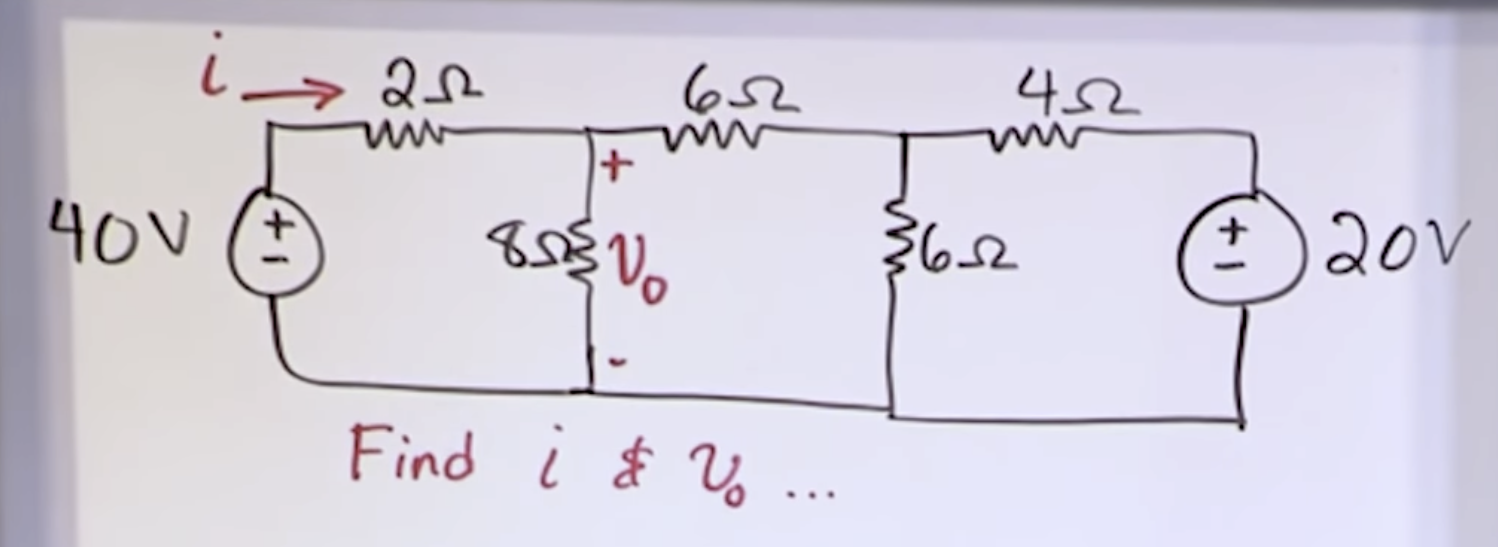 i → 2Ω 6Ω 4Ω
+
40V + - 8Ω v₀ 6Ω + - 20V
-
Find i & v₀ ...